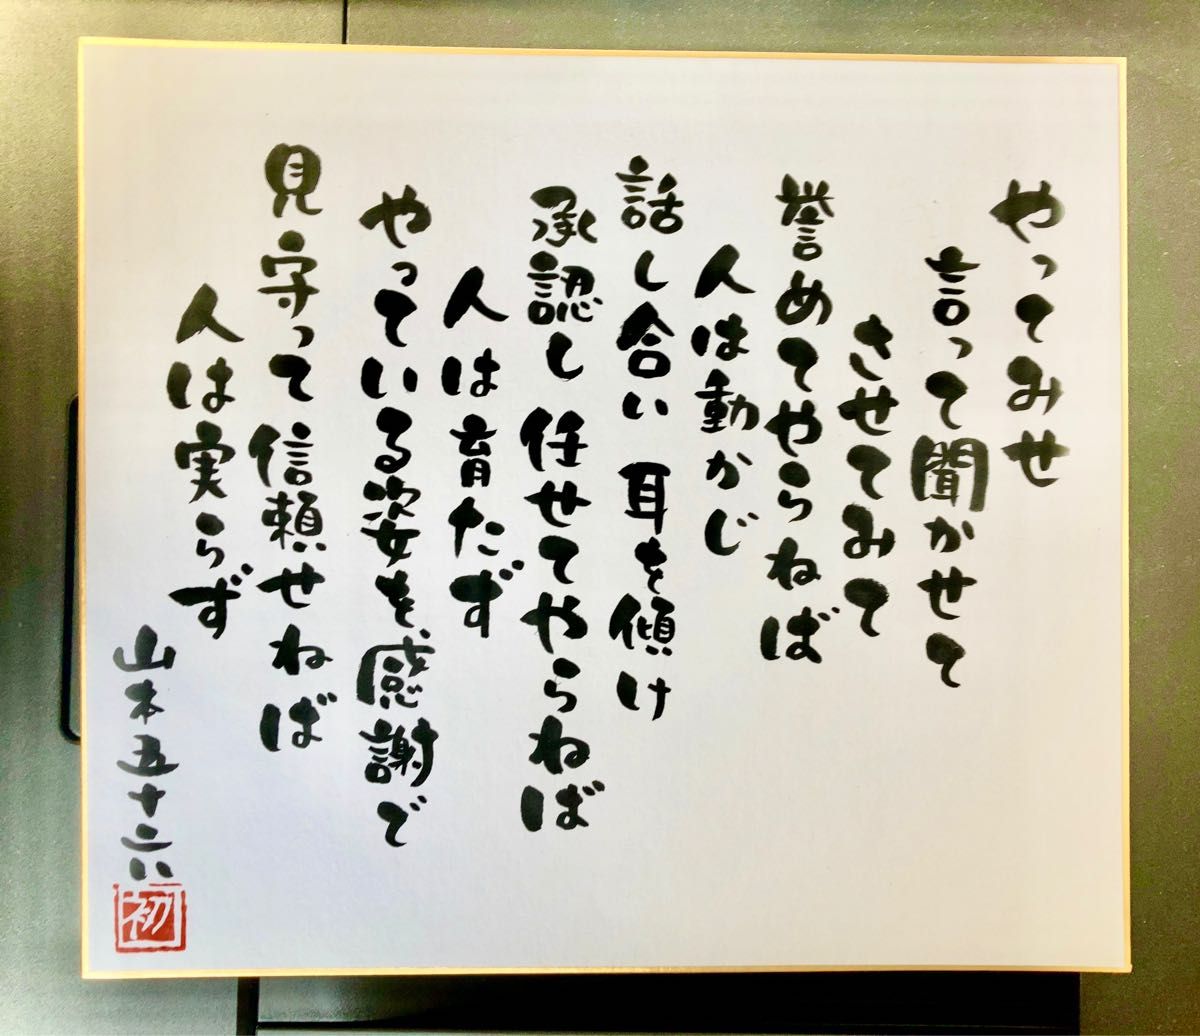 やってみせ
言って聞かせて
させてみて
誉めてやらねば
人は動かじ
話し合い 耳を傾け
承認し 任せてやらねば
人は育たず
やっている姿を感謝で
見守って信頼せねば
人は実らず
山本五十六
初